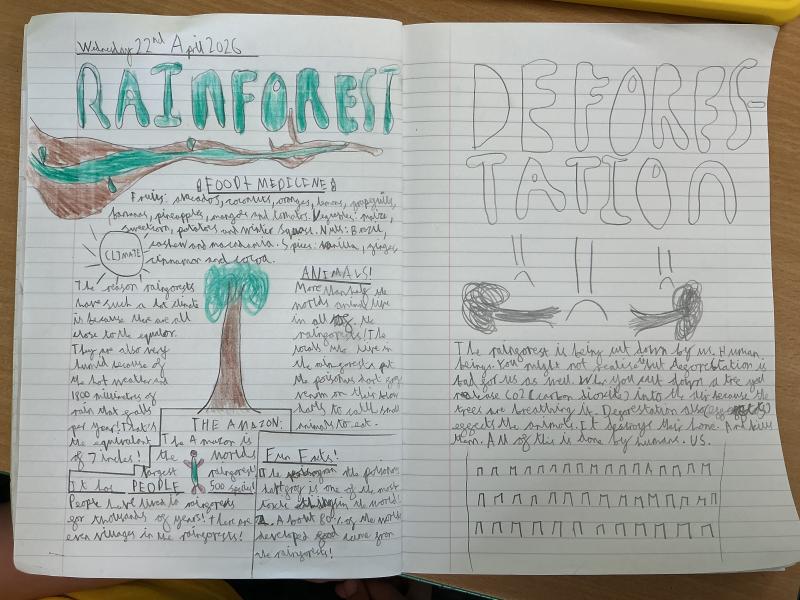 Wednesday 22nd April 2026
RAINFOREST
FOOD + MEDICINE
Fruits: avocados, coconuts, oranges, lemons, grapefruits,
bananas, pineapples, mangos and tomatos. Vegetables: maize,
sweetcorn, potatoes and winter squash. Nuts: Brazil,
cashew and macadamia. Spices: vanilla, ginger,
cinnamon and cocoa.
CLIMATE
The reason rainforests
have such a hot climate
is because they are all
close to the equator.
They are also very
humid because of
the hot weather and
1800 millimetres of
rain that falls
per year! That's
the equivalent
of 7 inches!
ANIMALS!
More than half the
worlds animals live
in all of the
rainforests! The
locals who live in
the rainforests put
the poisonous dart frogs
venom on their blow
darts to kill small
animals to eat.
THE AMAZON:
The Amazon is
the worlds
largest rainforest!
It has 500 species!
PEOPLE
People have lived in rainforests
for thousands of years! There are
even villages in the rainforests!
Fun Facts!
1. The the poison
dart frog is one of the most
toxic things in the world!
2. About 80% of the worlds
developed food came from
the rainforests!
DEFORES-
TATION
The rainforest is being cut down by us. Human
beings. You might not realise but deforestation is
bad for us as well. When you cut down a tree you
release CO2 (carbon dioxide) into the air because the
trees are breathing it. Deforestation also
effects the animals. It destroys their home. And kills
them. All of this is done by humans. US.